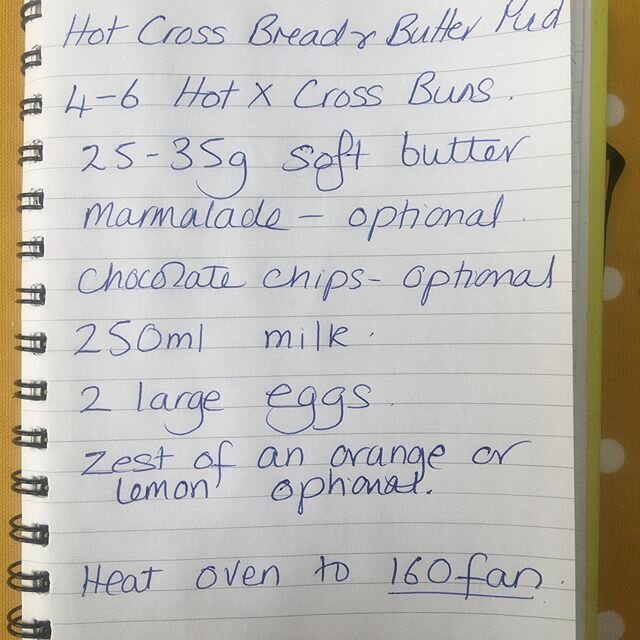 Hot Cross Bread & Butter Pud
4-6 Hot X Cross Buns.
25-35g soft butter
marmalade - optional.
chocolate chips - optional
250ml milk.
2 large eggs.
Zest of an orange or
lemon optional.
Heat oven to 160 fan.